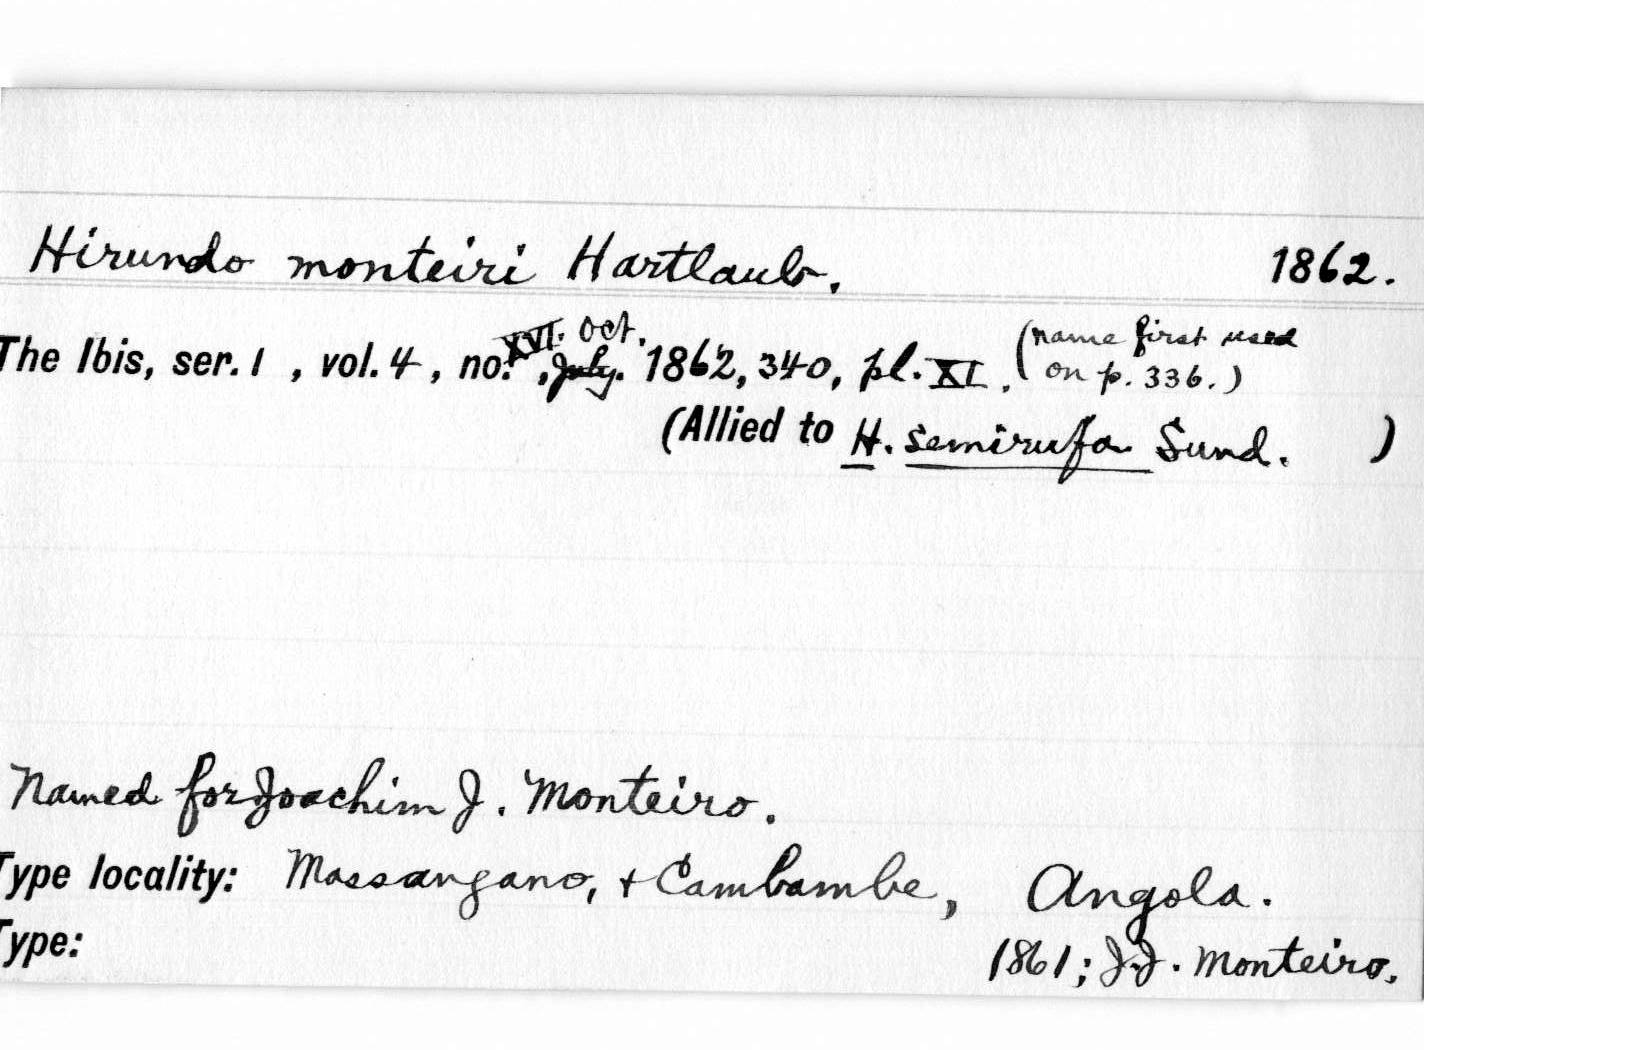 Hirundo monteiri Hartlaub. 1862.
The Ibis, ser. 1 , vol. 4 , no. XVI. , July. Oct. 1862, 340, pl. XI. (name first used
on p. 336.)
(Allied to H. semirufa Sund. )
Named for Joachim J. Monteiro.
Type locality: Massangano, + Cambambe, Angola.
Type: 1861; J.J. Monteiro.